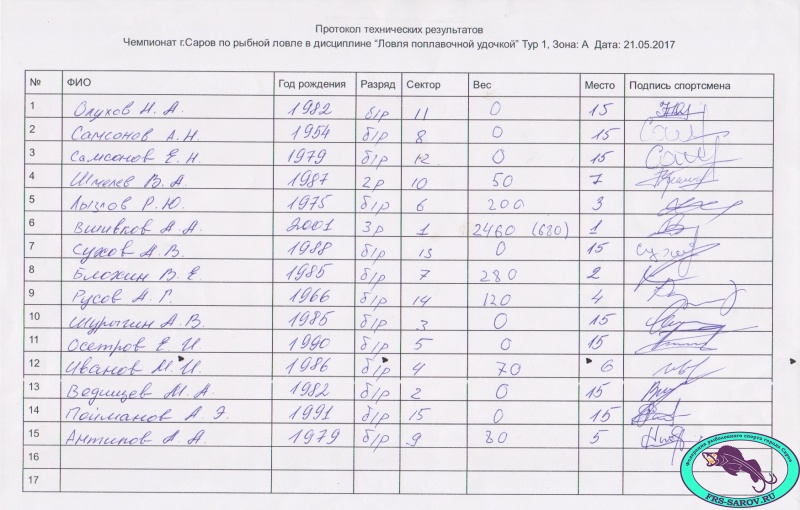 Протокол технических результатов
Чемпионат г.Саров по рыбной ловле в дисциплине "Ловля поплавочной удочкой" Тур 1, Зона: А Дата: 21.05.2017
№ ФИО Год рождения Разряд Сектор Вес Место Подпись спортсмена
1 Олухов Н. А. 1982 б/р 11 0 15
2 Самсонов А. Н. 1954 б/р 8 0 15
3 Самсонов Е. Н. 1979 б/р 12 0 15
4 Шмелев В. А. 1987 2р 10 50 7
5 Лызлов Р. Ю. 1975 б/р 6 200 3
6 Вшивков А. А. 2001 3р 1 2460 (680) 1
7 Сухов А. В. 1988 б/р 13 0 15
8 Блохин В. Е. 1985 б/р 7 280 2
9 Русов А. Г. 1966 б/р 14 120 4
10 Шурыгин А. В. 1985 б/р 3 0 15
11 Осетров Е. И. 1990 б/р 5 0 15
12 Иванов М. И. 1986 б/р 4 70 6
13 М. А. 1982 б/р 2 0 15
14 Пойманов А. Э. 1991 б/р 15 0 15
15 Антипов А. А. 1979 б/р 9 80 5
16
17
Федерация рыболовного спорта города Саров
FRS-SAROV.RU